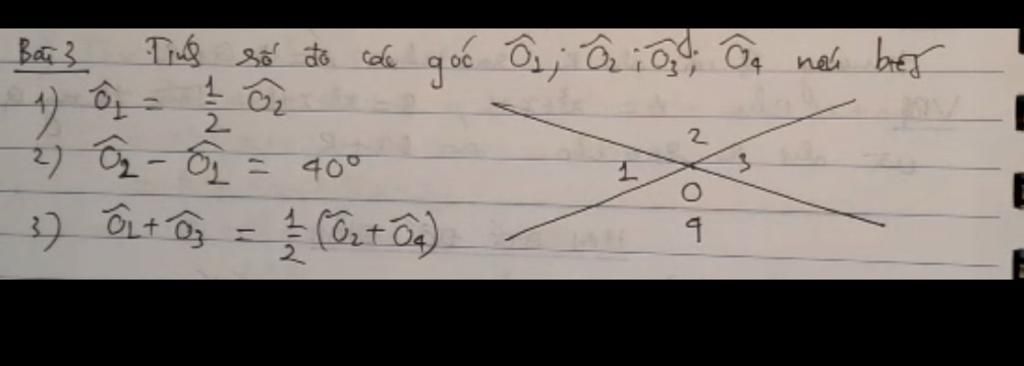 Bài 3 Tính số đo các góc Ô1; Ô2; Ô3; Ô4 nếu biết
1) Ô1 = 1/2 Ô2
2) Ô2 - Ô1 = 40°
3) Ô1 + Ô3 = 1/2 (Ô2 + Ô4)
2
1 3
O
4